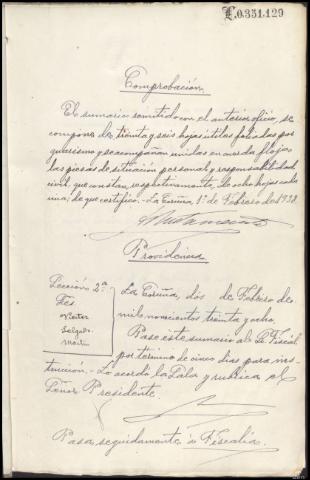 E.0.351.129
Comprobación.
El sumario remitido con el anterior oficio, se
compone de treinta y seis hojas útiles foliadas por
y se acompañan unidas en cuerda floja,
las piezas de situación personal y responsabilidad
civil, que constan, respectivamente, de ocho hojas cada
una; de que certifico. La Coruña 1º de Febrero de 1938.
Providencia
Sección 2ª
La Coruña, dos de Febrero de
mil novecientos treinta y ocho.
Salgado
Martín
Pase este sumario al Sr Fiscal
por término de cinco días para ins-
trucción. Lo acordó la Sala y rubrica el
Señor Presidente.
Pasa seguidamente a Fiscalía.